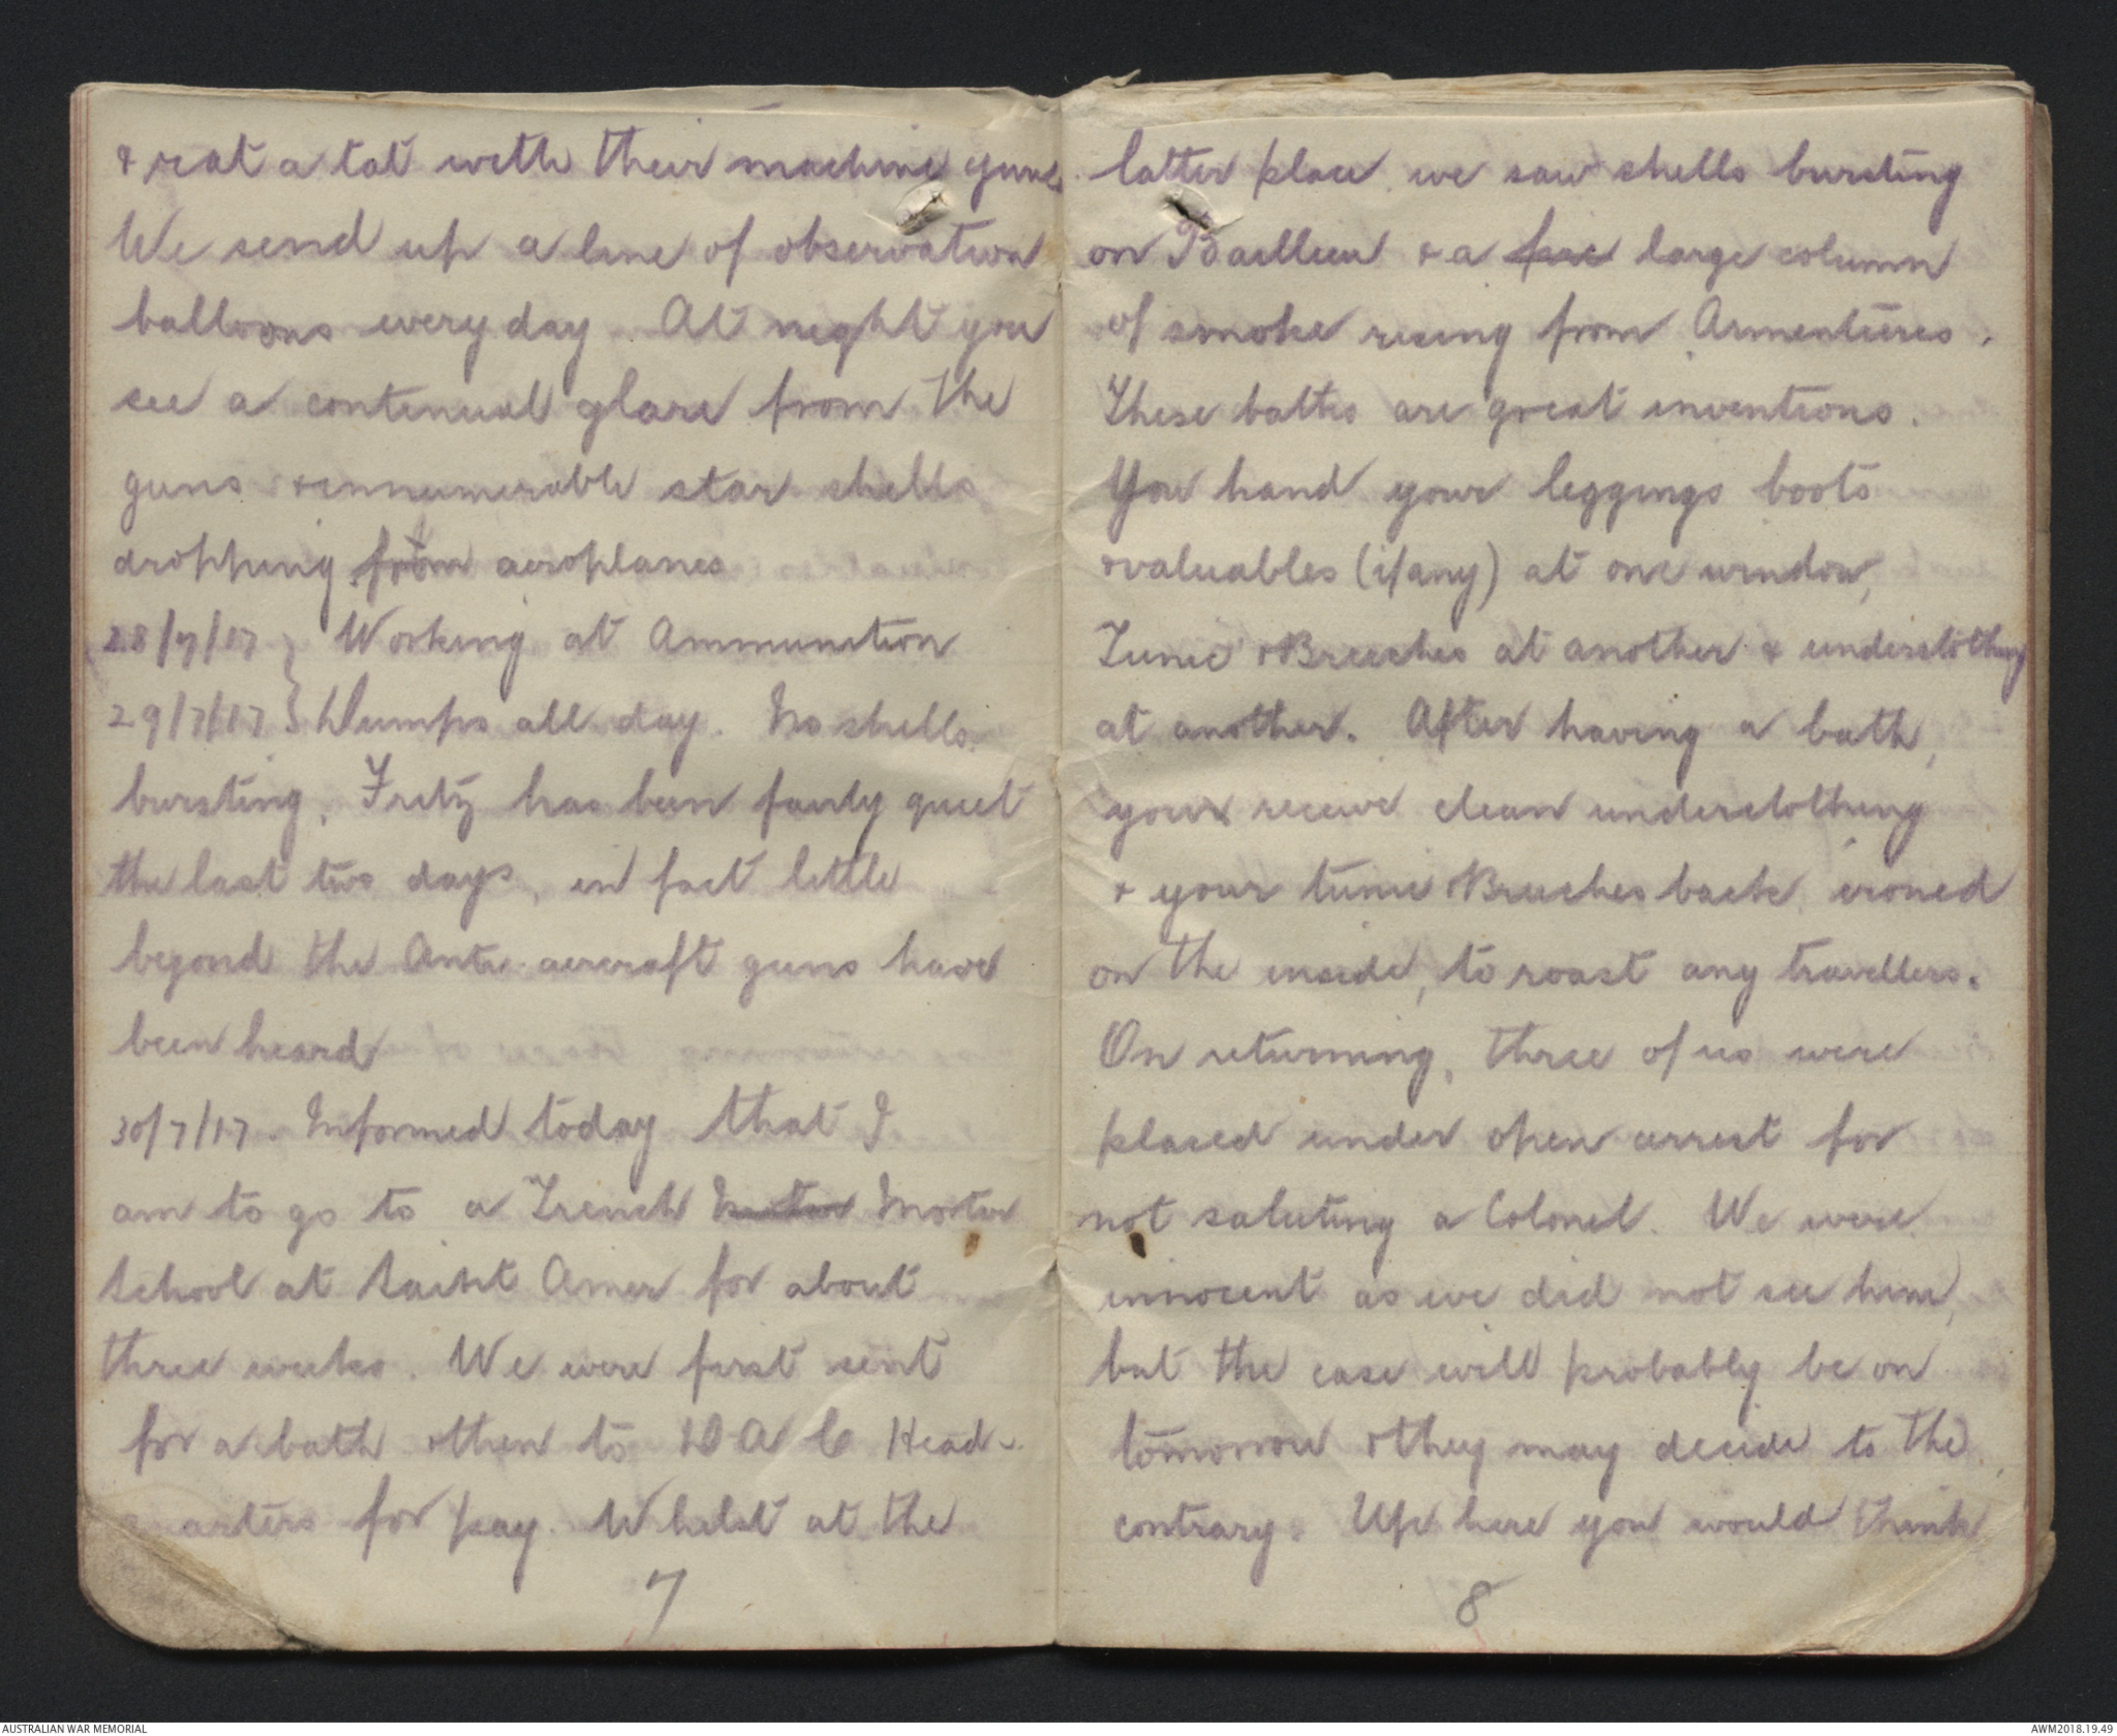 & rat a tat with their machine guns.
We send up a line of observation
balloons every day. At night you
see a continual glare from the
guns & innumerable star shells
dropping from aeroplanes
28/7/17 } Working at Ammunition
29/7/17 } Dumps all day. No shells
bursting. Fritz has been fairly quiet
the last two days, in fact little
beyond the Anti aircraft guns have
been heard
30/7/17. Informed today that I
am to go to a Trench Motor
School at Saint Omer for about
three weeks. We were first sent
for a bath & then to D A C Head-
arters for pay. Whilst at the
7
latter place we saw shells bursting
on Bailleul & a large column
of smoke rising from Armentieres.
These baths are great inventions.
You hand your leggings boots
& valuables (if any) at one window,
Tunic & Breeches at another & underclothing
at another. After having a bath,
you receive clean underclothing
& your tunic & Breeches back ironed
on the inside, to roast any travellers.
On returning, three of us were
placed under open arrest for
not saluting a Colonel. We were
innocent as we did not see him,
but the case will probably be on
tomorrow & they may decide to the
contrary. Up here you would think
8
AUSTRALIAN WAR MEMORIAL
AWM2018.19.49